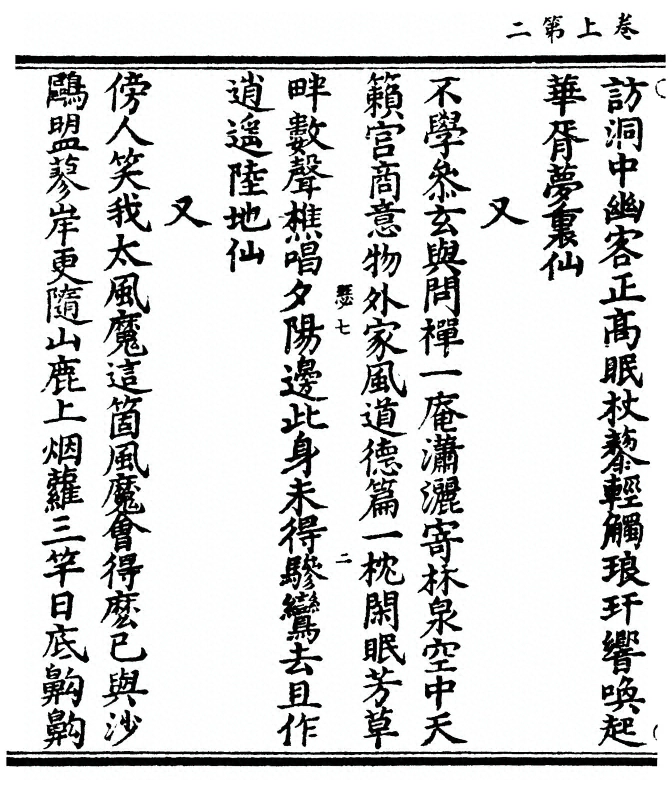 卷上第二
訪洞中幽客正高眠杖藜輕觸琅玕響喚起
華胥夢裏仙
又
不學叅玄與問禪一庵瀟灑寄林泉空中天
籟宮商意物外家風道德篇一枕閑眠芳草
愁七
二
畔數聲樵唱夕陽邊此身未得驂鸞去且作
逍遥陸地仙
又
傍人笑我太風魔這箇風魔會得麽已與沙
鷗盟蓼岸更隨山鹿上烟蘿三竿日底齁齁